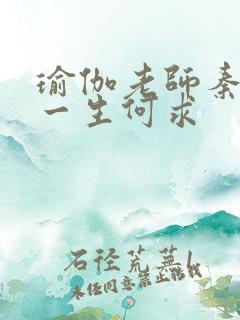 瑜伽老师秦
一生何求
石径荒芜
未经同意禁止转载